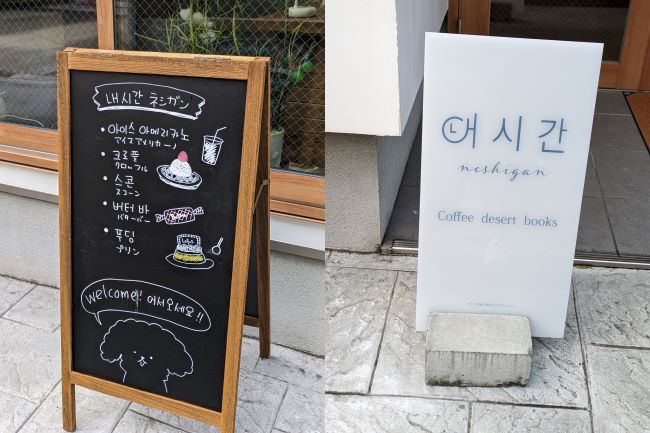 내시간 ネシガン
• 아이스 아메리카노
アイスアメリカーノ
• 크로플
クロッフル
• 스콘
スコーン
• 버터 바
バターバー
• 푸딩
プリン
welcome! 어서오세요!!
내시간
neshigan
Coffee desert books